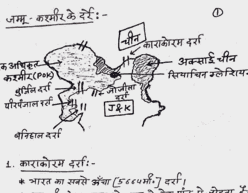 जम्मू - कश्मीर के दर्रे:-
①
चीन
काराकोरम दर्रा
अक्साई चीन
सियाचिन ग्लेशियर
कश्मीर (POK)
बुर्जिल दर्रा
पीरपंजाल दर्रा
जोजीला दर्रा
J&K
बनिहाल दर्रा
1. काराकोरम दर्रा:-
* भारत का सबसे ऊँचा [5664मी०] दर्रा।